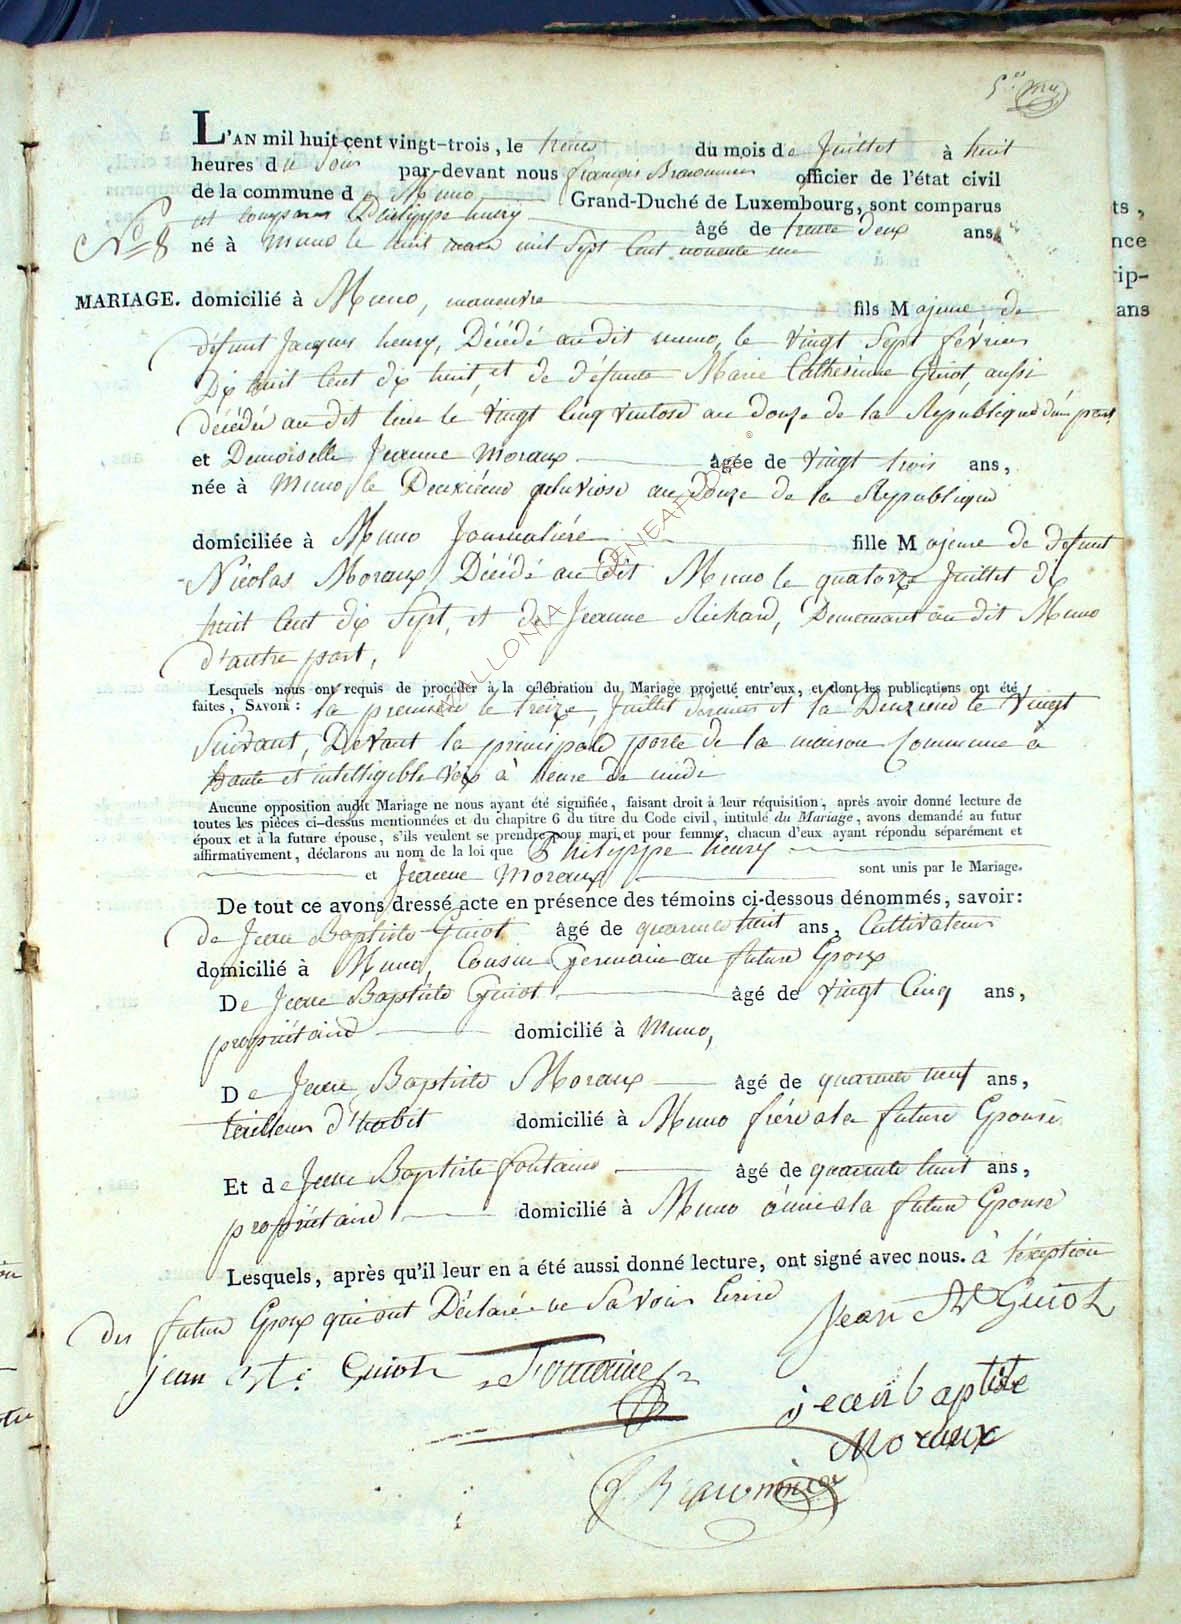 L'AN mil huit cent vingt-trois, le trente du mois de Juillet à huit
heures du Soir par-devant nous françois officier de l'état civil
de la commune de Muno Grand-Duché de Luxembourg, sont comparus
Philippe henry âgé de trente deux ans
N° 8 né à Muno le huit mars mil Sept Cent nonente une
MARIAGE. domicilié à Muno, maneuvre fils Majeure de
défunt Jacques henry, Décédé au dit muno, le vingt Sept février
Dix huit Cent dix huit, et de défunte Marie Catherinne Guiot, aussi
décédée au dit lieu le vingt Cinq ventose an douze de la République d'une part
et Demoiselle Jeanne Moraux âgée de vingt trois ans,
née à Muno, le Deuxiéme pluviose an douze de la République
domiciliée à Muno Journaliére fille Majeure de défunt
Nicolas Moraux, Décédé au dit Muno le quatorze Juillet dix
huit Cent dix Sept, et de Jeanne Richard, Demeurant au dit Muno
d'autre part,
Lesquels nous ont requis de procéder à la célébration du Mariage projetté entr'eux, et dont les publications ont été
faites, SAVOIR : la premiere le treize, Juillet dernier et la Deuxieme le Vingt
Suivant, Devant la principale porte de la maison Commune à
haute et intelligible voix à heure de midi
Aucune opposition audit Mariage ne nous ayant été signifiée, faisant droit à leur réquisition, après avoir donné lecture de
toutes les pièces ci-dessus mentionnées et du chapitre 6 du titre du Code civil, intitulé du Mariage, avons demandé au futur
époux et à la future épouse, s'ils veulent se prendre pour mari et pour femme, chacun d'eux ayant répondu séparément et
affirmativement, déclarons au nom de la loi que Philyppe henry
et Jeanne Moraux sont unis par le Mariage.
De tout ce avons dressé acte en présence des témoins ci-dessous dénommés, savoir:
de Jean Baptiste Guiot âgé de quarante huit ans, Cultivateur
domicilié à Muno, Cousin Germain au future Epoux
De Jean Baptiste Guiot âgé de vingt Cinq ans,
propriétaire domicilié à Muno,
De Jean Baptiste Moraux âgé de quarante neuf ans,
tailleur d'habit domicilié à Muno frére a la future Epouse
Et de Jean Baptiste fontaine âgé de quarante huit ans,
propriétaire domicilié à Muno ámie a la future Epouse
Lesquels, après qu'il leur en a été aussi donné lecture, ont signé avec nous. à l'éxeption
des future Epoux qui ont Déclaré ne Savoir Ecrire
Jean Bte Guiot
jean Bte Guiot Fontaine
jean baptiste
Moraux
WALLONIA GENEAFDOC ©